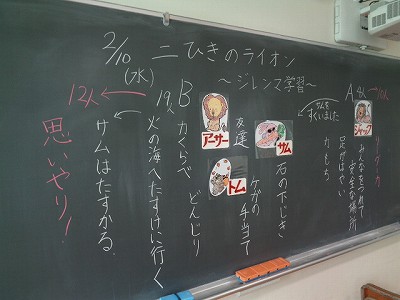 2/10 (水) 二ひきのライオン
〜ジレンマ学習〜
A
ジャック
みんなをつれて
安全な場所
足がはやい
力もち
サムを
すくいました
サム
石の下じき
ケガの手当て
友達
アーサー
トム
B 力くらべ どんじり
19人 火の海へたすけに行く
12人
サムはたすかる。
思いやり!